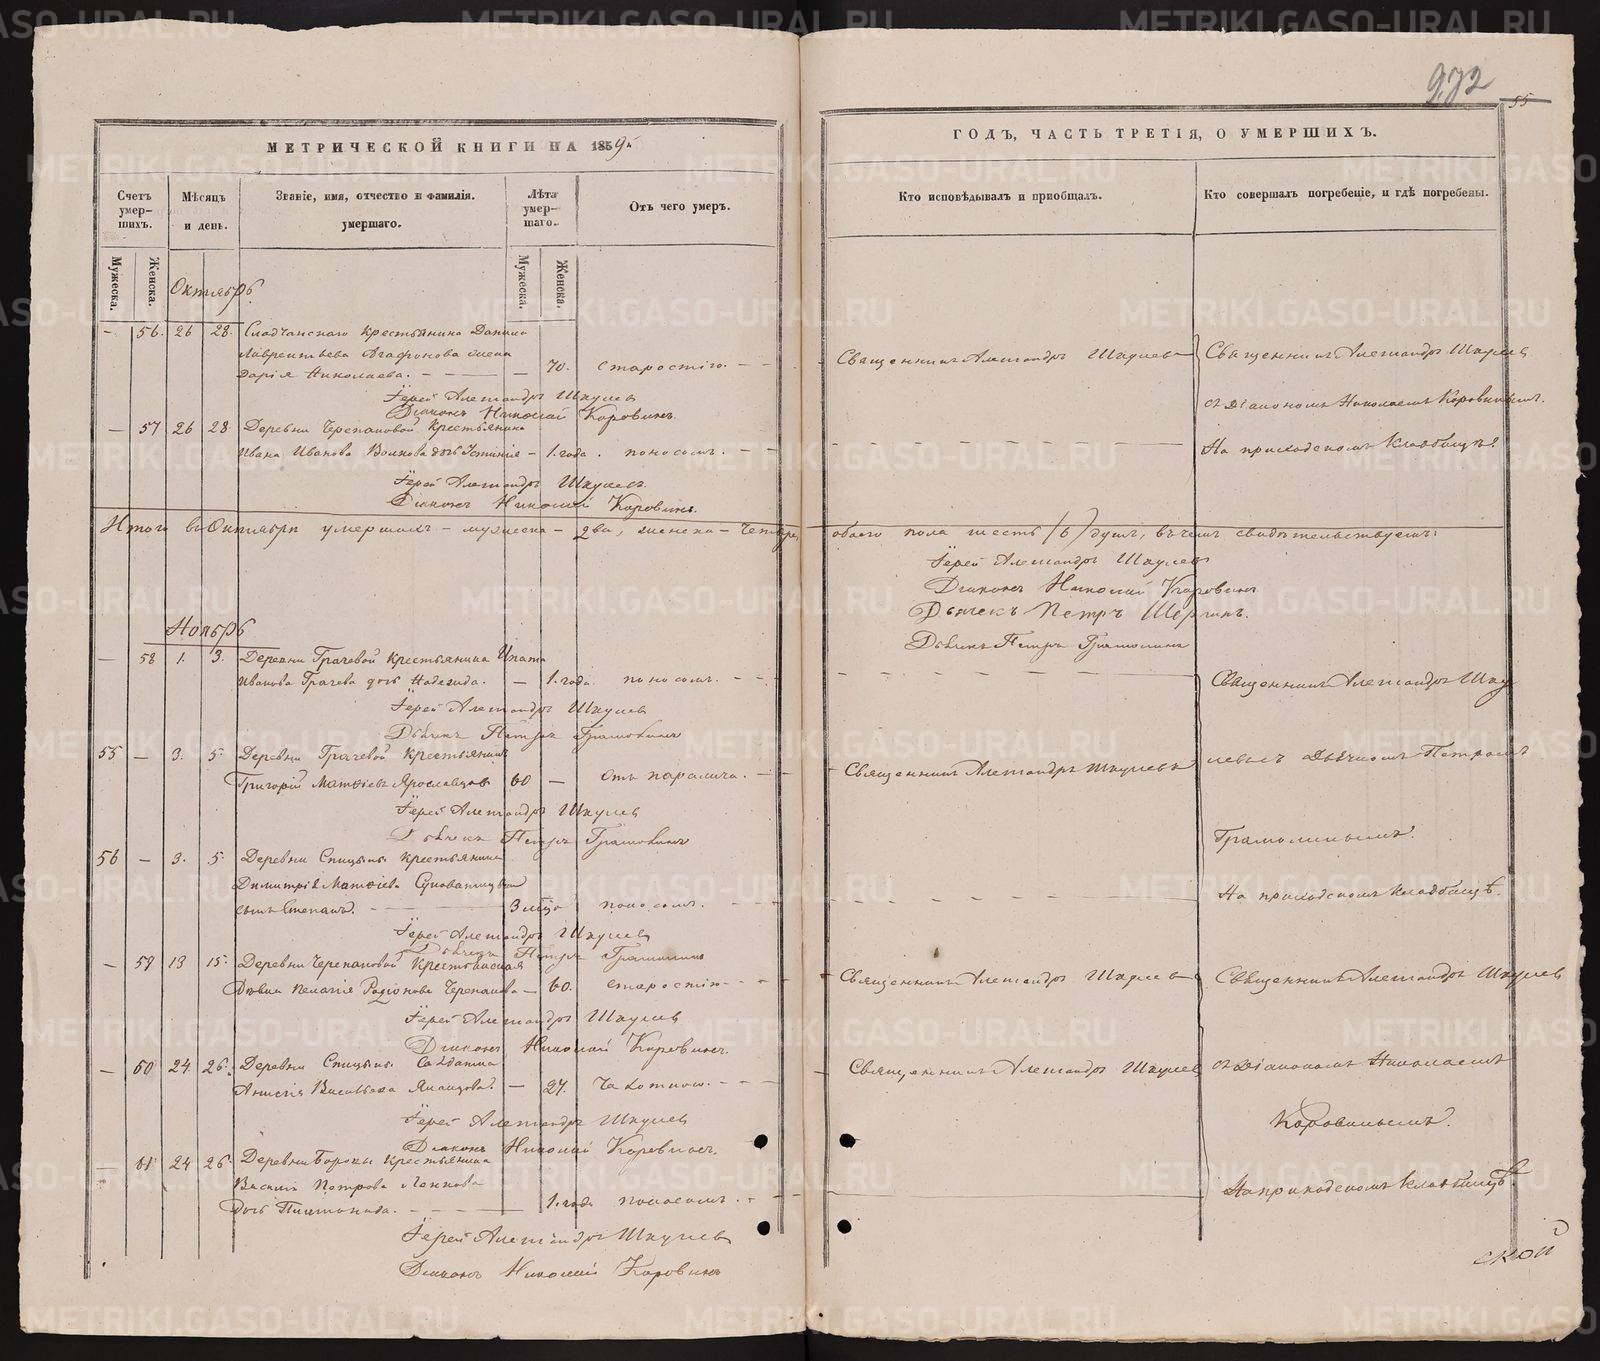 972
55
МЕТРИЧЕСКОЙ КНИГИ НА 1859й
Счетъ умер-шихъ.
Мѣсяцъ и день.
Званіе, имя, отчество и фамилія. умершаго.
Лѣта умер-шаго.
Отъ чего умеръ.
Мужеска.
Женска.
Мужеска.
Женска.
Октябрь
— 56. 26 28. Крестьянина Данила
Лаврентьева Агафонова жена
Дарія Николаева. — — — 70. старостію. — —
Іерей Александръ Шкулевъ
Діаконъ Николай Коровинъ.
— 57 26 28. Деревни Черепановой Крестьянина
Ивана Иванова Волкова дочь Устинія — 1. года. поносомъ. — —
Іерей Александръ Шкулевъ.
Діаконъ Николай Коровинъ.
Итого въ Октябрѣ умершихъ — мужеска — два, женска — четыре,
Ноябрь
— 58 1. 3. Деревни Грачевой Крестьянина Ипата
Иванова Грачева дочь Надежда. — 1. года. поносомъ. — —
Іерей Александръ Шкулевъ
Дьячекъ Петръ
55 — 3. 5. Деревни Грачевой Крестьянинъ
Григорій Матѳіевъ Ярославцовъ 60 — отъ паралича. — —
Іерей Александръ Шкулевъ
Дьячекъ Петръ
56 — 3. 5. Деревни Спицыной Крестьянина
Димитрія Матѳіева
сынъ Степанъ. — — 3 мѣс. поносомъ. — —
Іерей Александръ Шкулевъ
Дьячекъ Петръ
— 59 13 15. Деревни Черепановой Крестьянская
Дѣвица Пелагія Родіонова Черепанова — 60. старостію — —
Іерей Александръ Шкулевъ
Діаконъ Николай Коровинъ.
— 60 24 26. Деревни Спицыной Солдатка
Анисія Васильева — 27. Чахоткою. — —
Іерей Александръ Шкулевъ
Діаконъ Николай Коровинъ.
— 61 24 26. Деревни Крестьянина
Василія Петрова
дочь — — — 1. года поносомъ. — —
Іерей Александръ Шкулевъ
Діаконъ Николай Коровинъ
ГОДЪ, ЧАСТЬ ТРЕТІЯ, О УМЕРШИХЪ.
Кто исповѣдывалъ и пріобщалъ.
Кто совершалъ погребеніе, и гдѣ погребены.
Священникъ Александръ Шкулевъ
Священникъ Александръ Шкулевъ
съ Діакономъ Николаемъ Коровинымъ.
На приходскомъ кладбищѣ.
обоего пола шесть (6) душъ, въ чемъ свидѣтельствуемъ:
Іерей Александръ Шкулевъ
Діаконъ Николай Коровинъ
Дьячекъ Петръ
Дьячекъ Петръ
Священникъ Александръ Шку
Священникъ Александръ Шкулевъ
левъ съ Дьячкомъ Петромъ
На приходскомъ кладбищѣ.
Священникъ Александръ Шкулевъ
Священникъ Александръ Шкулевъ
Священникъ Александръ Шкулевъ
съ Діакономъ Николаемъ
Коровинымъ.
На приходскомъ кладбищѣ.
ской
METRIKI.GASO-URAL.RU